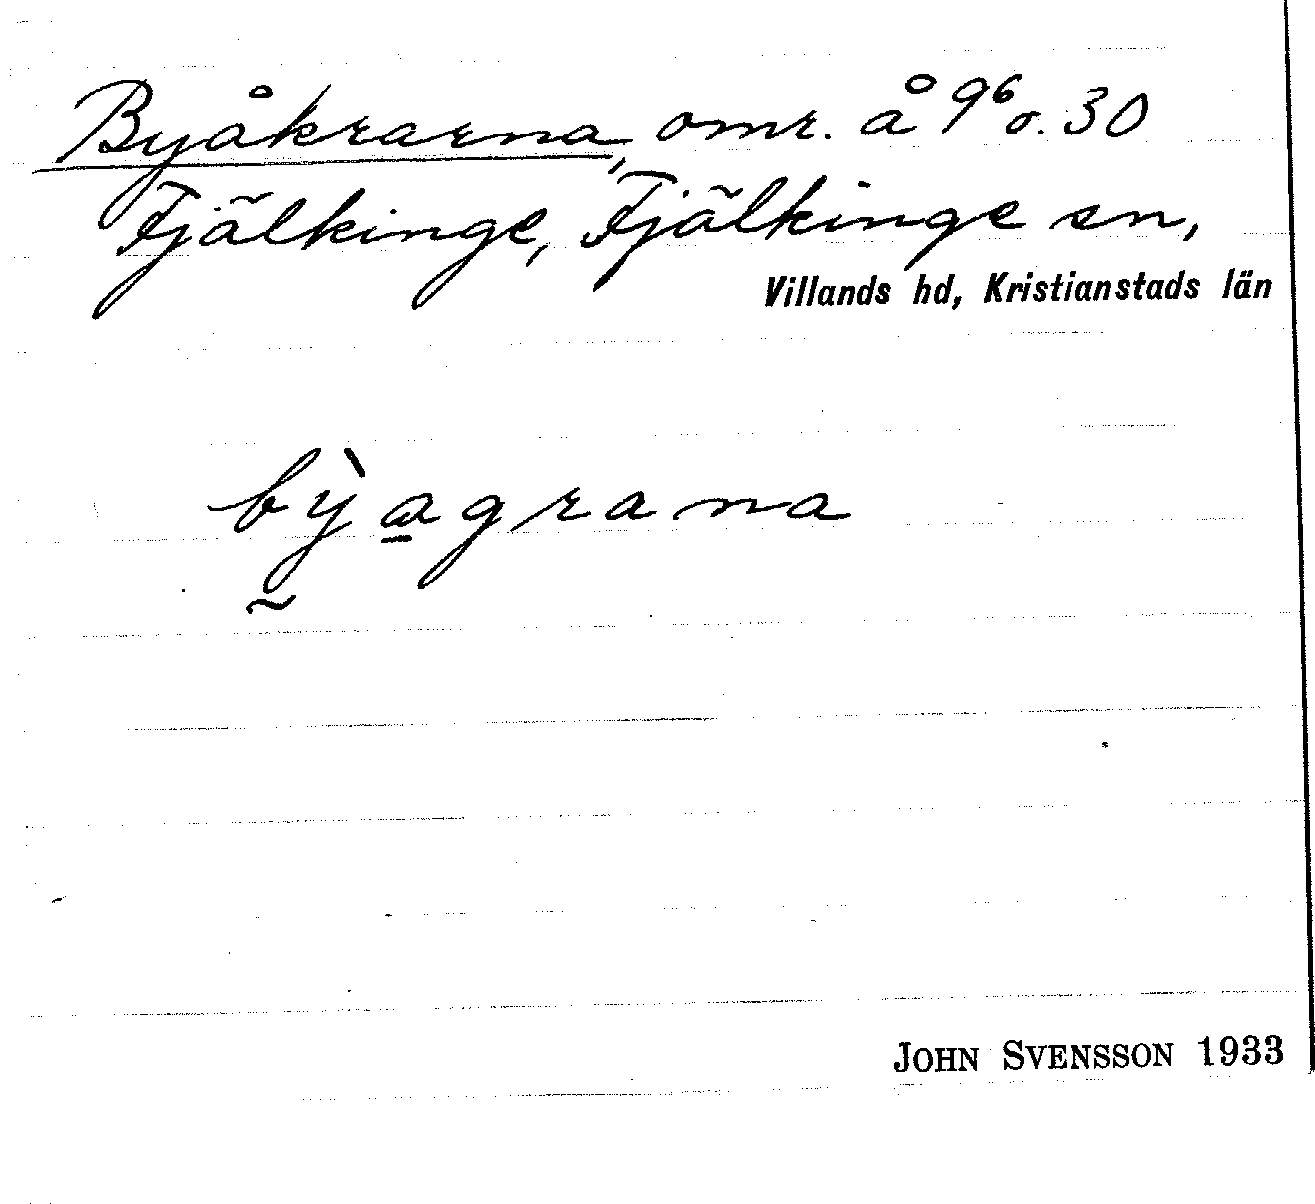 Byåkrarna, omr. å 9⁶ o. 30
Fjälkinge, Fjälkinge sn,
Villands hd, Kristianstads län
bỳagrana
JOHN SVENSSON 1933